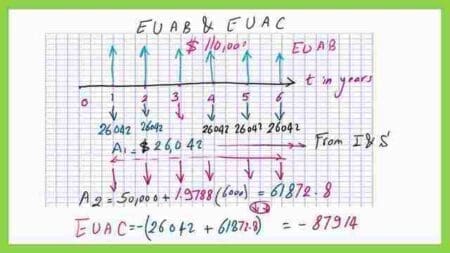 EUAB & EUAC
$ 110,000
EUAB
t in years
0 1 2 3 4 5 6
26042 26042 26042 26042 26042
A1 = $ 26,042
From I & S
A2 = 50,000 + 1.9788 (6000) = 61872.8
EUAC = -(26042 + 61872.8) = -87914